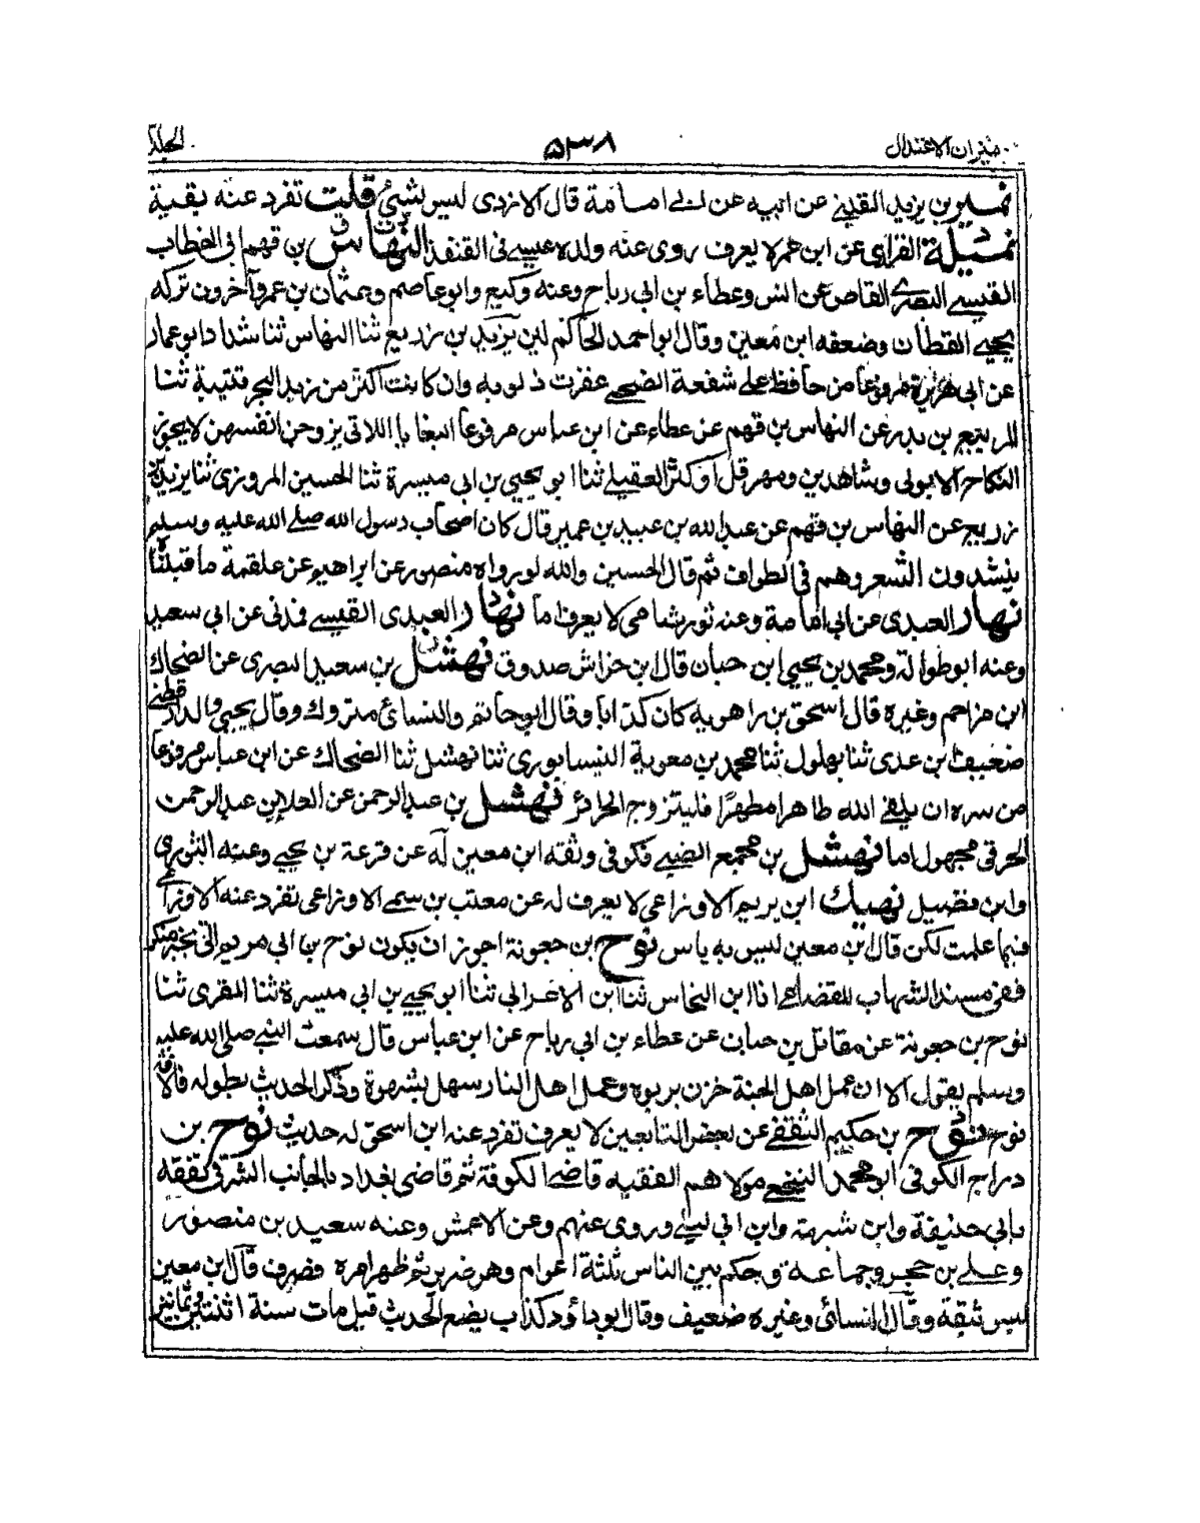 ميزان الاعتدال ۵۳۸ الجلد
نمير بن يزيد القينى عن ابيه عن ابى امامة قال الازدى ليس بشئ قلت تفرد عنه بقية
نميلة الفزارى عن ابن عمر لا يعرف روى عنه ولده عيسى فى القنفذ النهاس بن قهم ابو الخطاب
القيسى البصرى القاص عن انس وعطاء بن ابى رباح وعنه وكيع وابو عاصم وعثمان بن عمر وآخرون تركه
يحيى القطان وضعفه ابن معين وقال ابو احمد الحاكم لين يزيد بن زريع ثنا النهاس ثنا شداد ابو عمار
عن ابى هريرة مرفوعا من حافظ على شفعة الضحى غفرت ذنوبه وان كانت اكثر من زبد البحر قتيبة ثنا
الربيع بن بدر عن النهاس بن قهم عن عطاء عن ابن عباس مرفوعا البغايا اللاتى يزوجن انفسهن لا يجوز
النكاح الا بولى وشاهدين ومهر قل او كثر العقيلى ثنا ابو يحيى بن ابى ميسرة ثنا الحسين المروزى ثنا يزيد بن
زريع عن النهاس بن قهم عن عبد الله بن عبيد بن عمير قال كان اصحاب رسول الله صلى الله عليه وسلم
ينشدون الشعر وهم فى الطواف ثم قال الحسين والله لو رواه منصور عن ابراهيم عن علقمة ما قبلناه
نهار العبدى عن ابى امامة وعنه ثور شامى لا يعرف اما نهار العبدى القيسى فمدنى عن ابى سعيد
وعنه ابو طوالة ومحمد بن يحيى ابن حبان قال ابن خراش صدوق نهشل بن سعيد البصرى عن الضحاك
ابن مزاحم وغيره قال اسحق بن راهويه كان كذابا وقال ابو حاتم والنسائى متروك وقال يحيى والدارقطنى
ضعيف ابن عدى ثنا بهلول ثنا محمد بن معوية النيسابورى ثنا نهشل ثنا الضحاك عن ابن عباس مرفوعا
من سره ان يلقى الله طاهرا مطهرا فليتزوج الحرائر نهشل بن عبد الرحمن عن العلا بن عبد الرحمن
الحرقى مجهول اما نهشل بن مجمع الضبى فكوفى وثقه ابن معين له عن قزعة بن يحيى وعنه الثورى
وابن فضيل نهيك ابن يريم الاوزاعى لا يعرف له عن مغيث بن سمى الاوزاعى تفرد عنه الاوزاعى
فيما علمت لكن قال ابن معين ليس به باس نوح بن جعونة اجوز ان يكون نوح بن ابى مريم اتى بخبر منكر
ففى مسند الشهاب للقضاعى انا ابن النحاس ثنا ابن الاعرابى ثنا ابو يحيى بن ابى ميسرة ثنا المقرى ثنا
نوح بن جعونة عن مقاتل بن حيان عن عطاء بن ابى رباح عن ابن عباس قال سمعت النبى صلى الله عليه
وسلم يقول الا ان عمل اهل الجنة حزن بربوه وعمل اهل النار سهل بشهوة وذكر الحديث بطوله فالآفة
نوح نوح بن حكيم الثقفى عن بعض التابعين لا يعرف تفرد عنه ابن اسحق له حديث نوح بن
دراج الكوفى ابو محمد النخعى مولاهم الفقيه قاضى الكوفة ثم قاضى بغداد بالجانب الشرقى تفقه
بابى حنيفة وابن شبرمة وابن ابى ليلى وروى عنهم وعن الاعمش وعنه سعيد بن منصور
وعلى بن حجر وجماعة وحكم بين الناس ثلثة اعوام وهو ضرير ثم ظهر امره فصرف قال ابن معين
ليس ثقة وقال النسائى وغيره ضعيف وقال ابو داؤد كذاب يضع الحديث قيل مات سنة اثنتين وثمانين